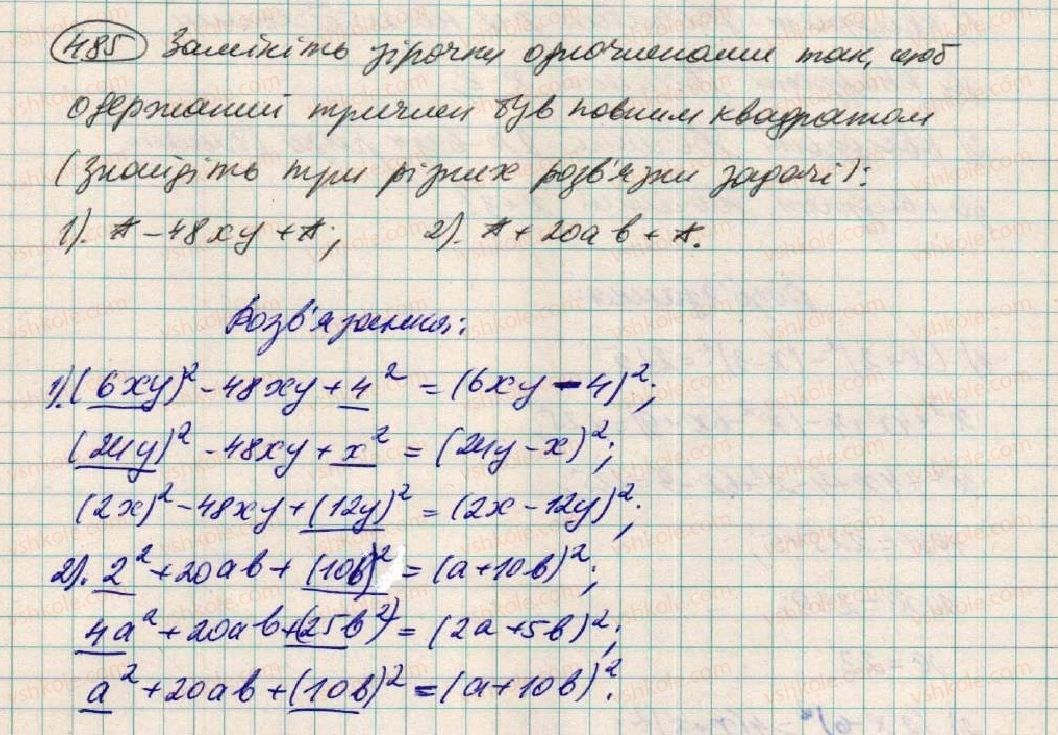 485 Замініть зірочки одночленами так, щоб
одержаний тричлен був повним квадратом
(знайдіть три різних розв'язки задачі):
1). * - 48xy + *; 2). * + 20ab + *.
Розв'язання:
1). (6xy)² - 48xy + 4² = (6xy - 4)²;
(24y)² - 48xy + x² = (24y - x)²;
(2x)² - 48xy + (12y)² = (2x - 12y)²;
2). 2² + 20ab + (10b)² = (a + 10b)²;
4a² + 20ab + (25b²) = (2a + 5b)²;
a² + 20ab + (10b)² = (a + 10b)².